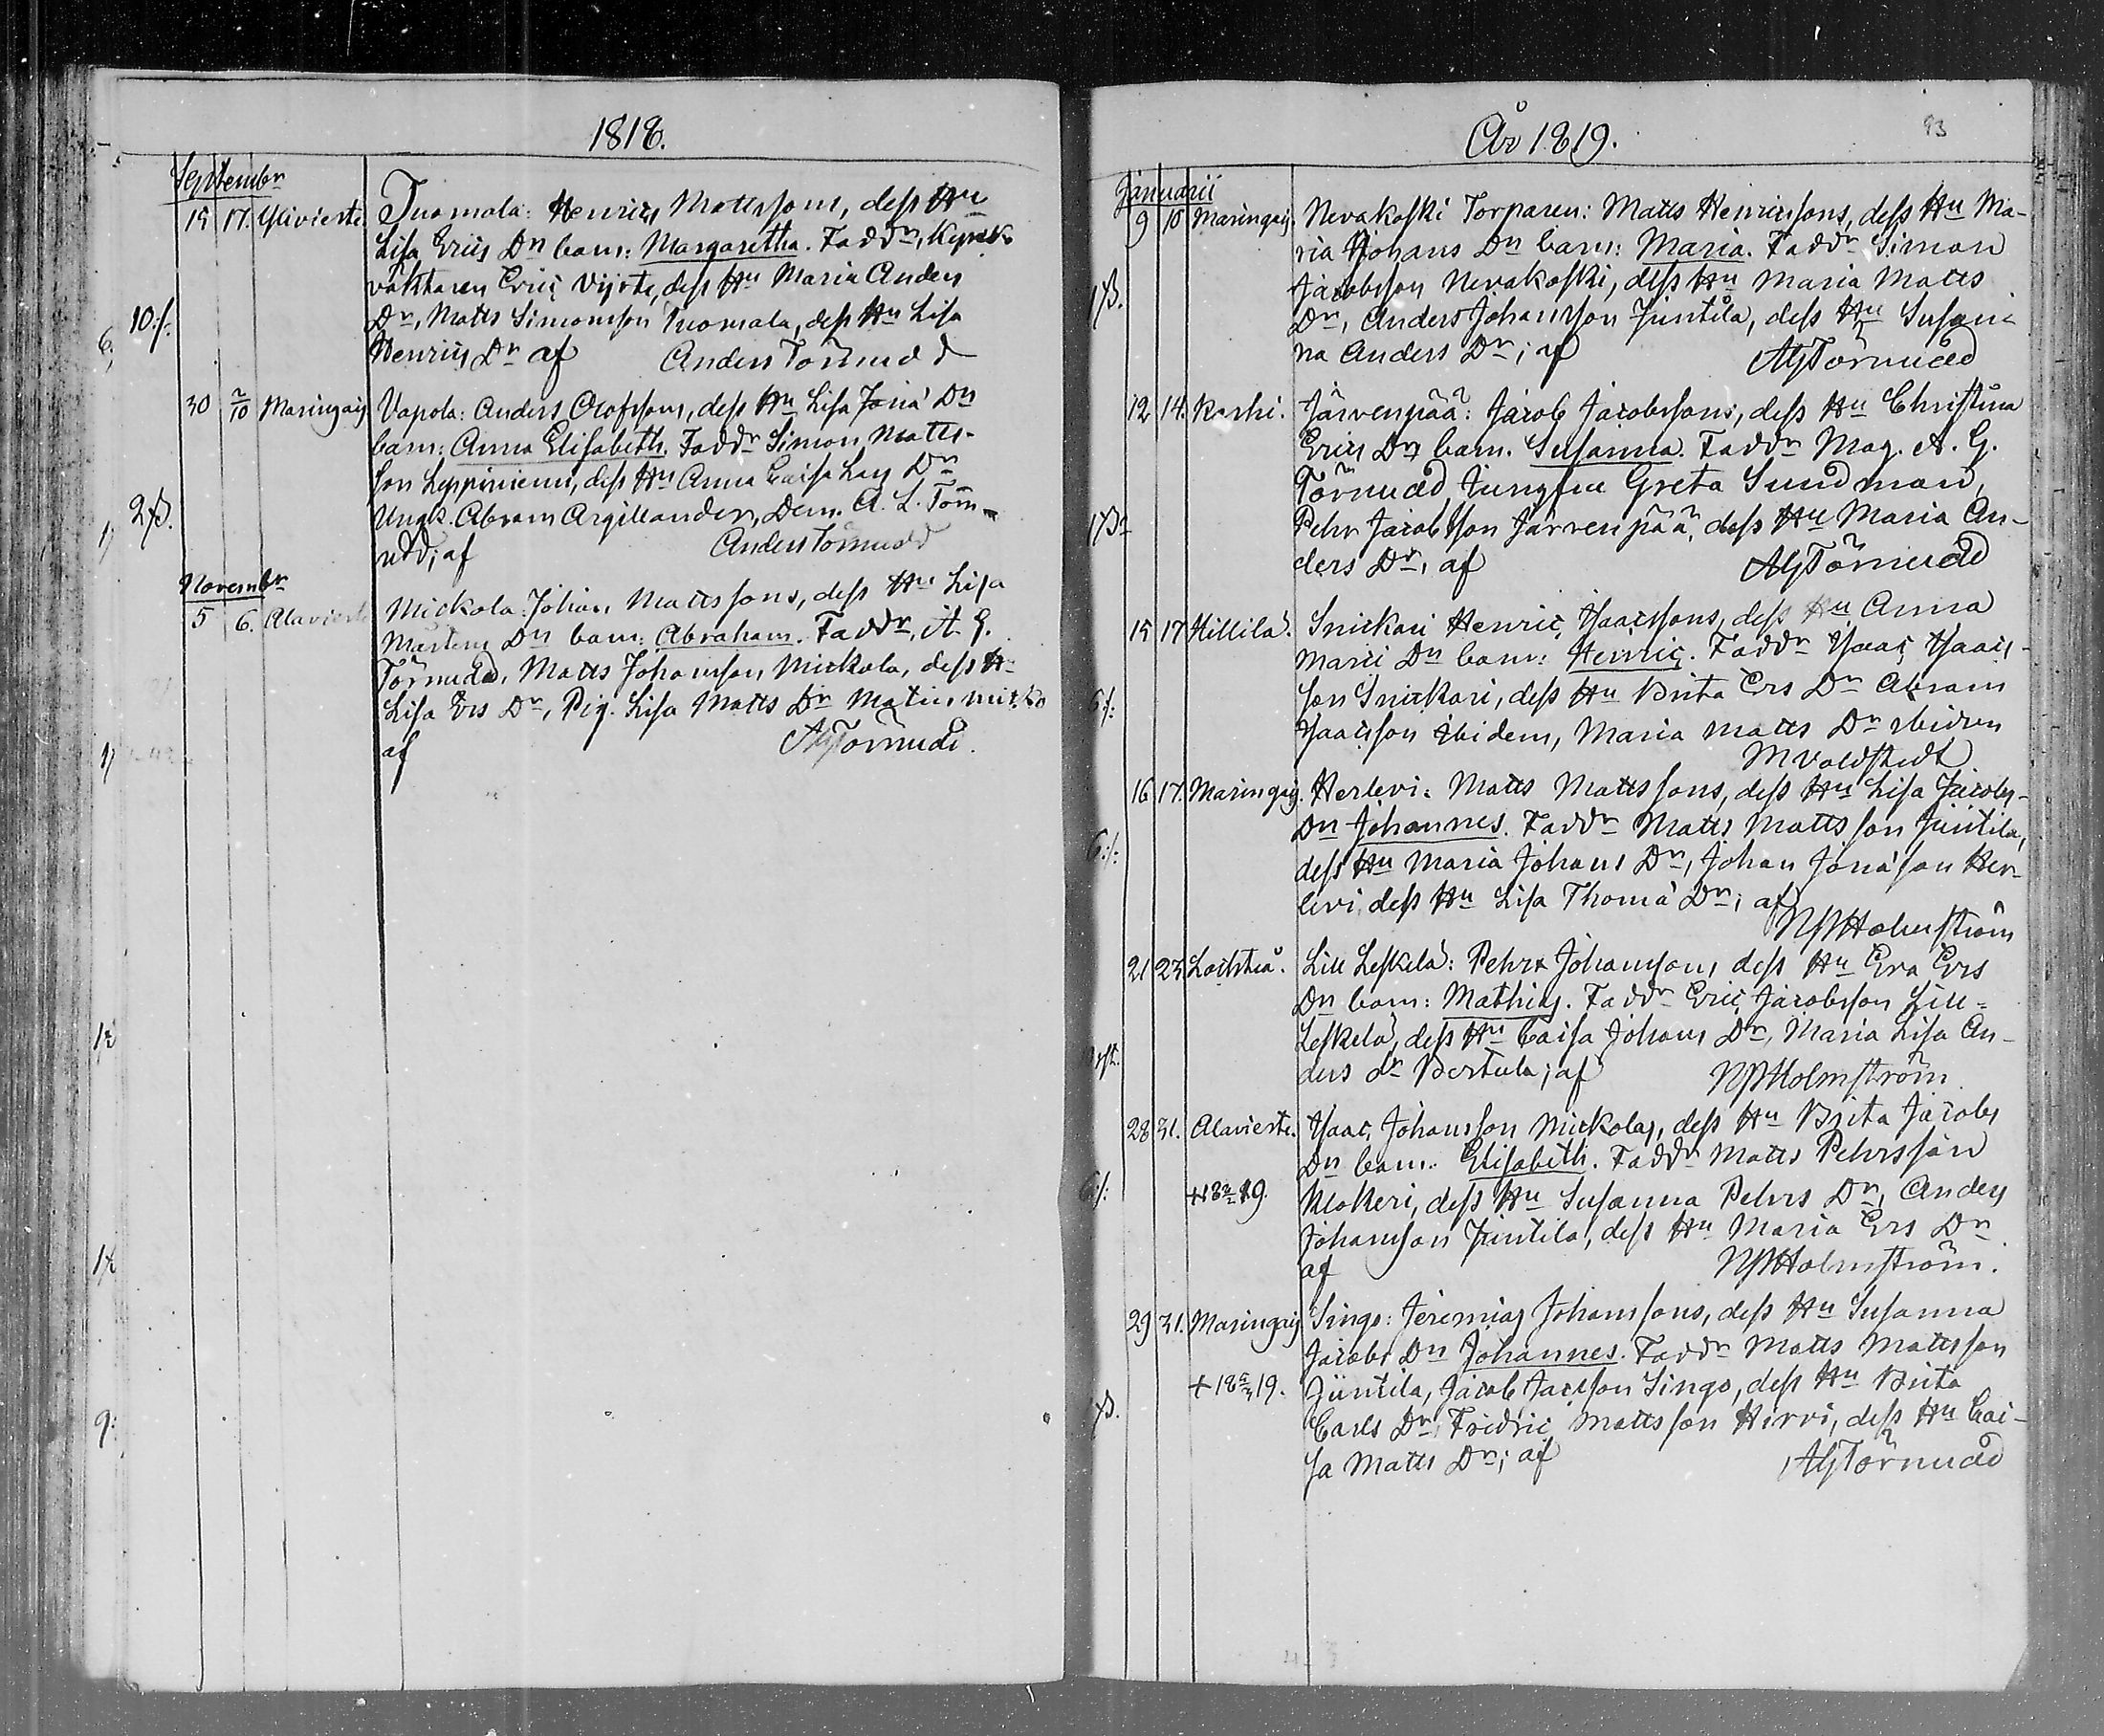 1818.
Septembr
15 17. Ylivieska. Tuomala: Henrics Mattssons, dess Hu
Lisa Erics Dn barn: Margaretha. Faddr, Kyrck-
väktaren Eric Vijrta, dess Hu Maria Anders
10 :/: Dr, Matts Simonsson Tuomala, dess Hu Lisa
Henrics Dr af Anders Törnudd
30 2/10 Maringais Vapola: Anders Olofssons, dess Hu Lisa Jonæ Dn
barn: Anna Elisabeth. Faddr Simon Matts-
son Leppiniemi, dess Hu Anna Caisa Lars Dr
2 ß. Ungk. Abram Argillander, Dem. A. L. Törn-
udd; af Anders Törnudd
Novembr
5 6. Alavieska Mickola: Johan Mattssons, dess Hu Lisa
Mårtens Dn barn: Abraham. Faddr, A. G.
Törnudd, Matts Johansson Mickola, dess H
Lisa Ers Dr, Pig. Lisa Matts Dr
af AGTörnudd.
År 1819.
93
Januarii
9 10 Maringais. Nevakoski Torparen: Matts Henricsons, dess Hu Ma-
ria Johans Dn barn: Maria. Faddr Simon
1 ß. Jacobsson Nevakoski, dess Hu Maria Matts
Dr, Anders Johansson Juntila, dess Hu Susan-
na Anders Dr; af AGTörnudd
12 14. Kærki. Järvenpää: Jacob Jacobssons, dess Hu Christina
Erics Dn barn. Susanna. Faddr Mag. A. G.
Törnudd, Jungfru Greta Sundman,
Pehr Jacobsson Järvenpää, dess Hu Maria An-
ders Dr, af AGTörnudd
15 17 Hillilä. Snickari Henric Isacssons, dess Hu Anna
Marci Dn barn: Henric. Faddr Isaac Isaacs-
6 :/: son Snickari, dess Hu Brita Ers Dr Abram
Isaacsson ibidem, Maria Matts Dr ibidem
M Valdstedt
16 17. Maringais. Herlevi: Matts Mattssons, dess Hu Lisa Jacobs
Dn Johannes. Faddr Matts Mattsson Juntila,
6 :/: dess Hu Maria Johans Dr, Johan Jonæson Her-
levi, dess Hu Lisa Thomæ Dr; af
NJHolmström
21 23. Lochteå. Lill Leskelä: Pehr Johanssons dess Hu Eva Ers
Dn barn: Mathias. Faddr Eric Jacobsson Lill-
Leskelä, dess Hu Caisa Johans Dr, Maria Lisa An-
ders dr Bertula; af NJHolmström
28 31. Alavieska. Isaac Johansson Mickolas, dess Hu Brita Jacobs
Dn barn. Elisabeth. Faddr Matts Pehrsson
6 :/: Klokeri, dess Hu Susanna Pehrs Dr, Anders
Johansson Juntila, dess Hu Maria Ers Dr
af NJHolmström.
29 31. Maringais Singo: Jeremias Johanssons, dess Hu Susanna
Jacobs Dn Johannes. Faddr Matts Mattsson
Juntila, Jacob Jacsson Singo, dess Hu Brita
ß. Carls Dr, Fredric Mattsson Hirvi, dess Hu Cai-
sa Matts Dr; af AGTörnudd